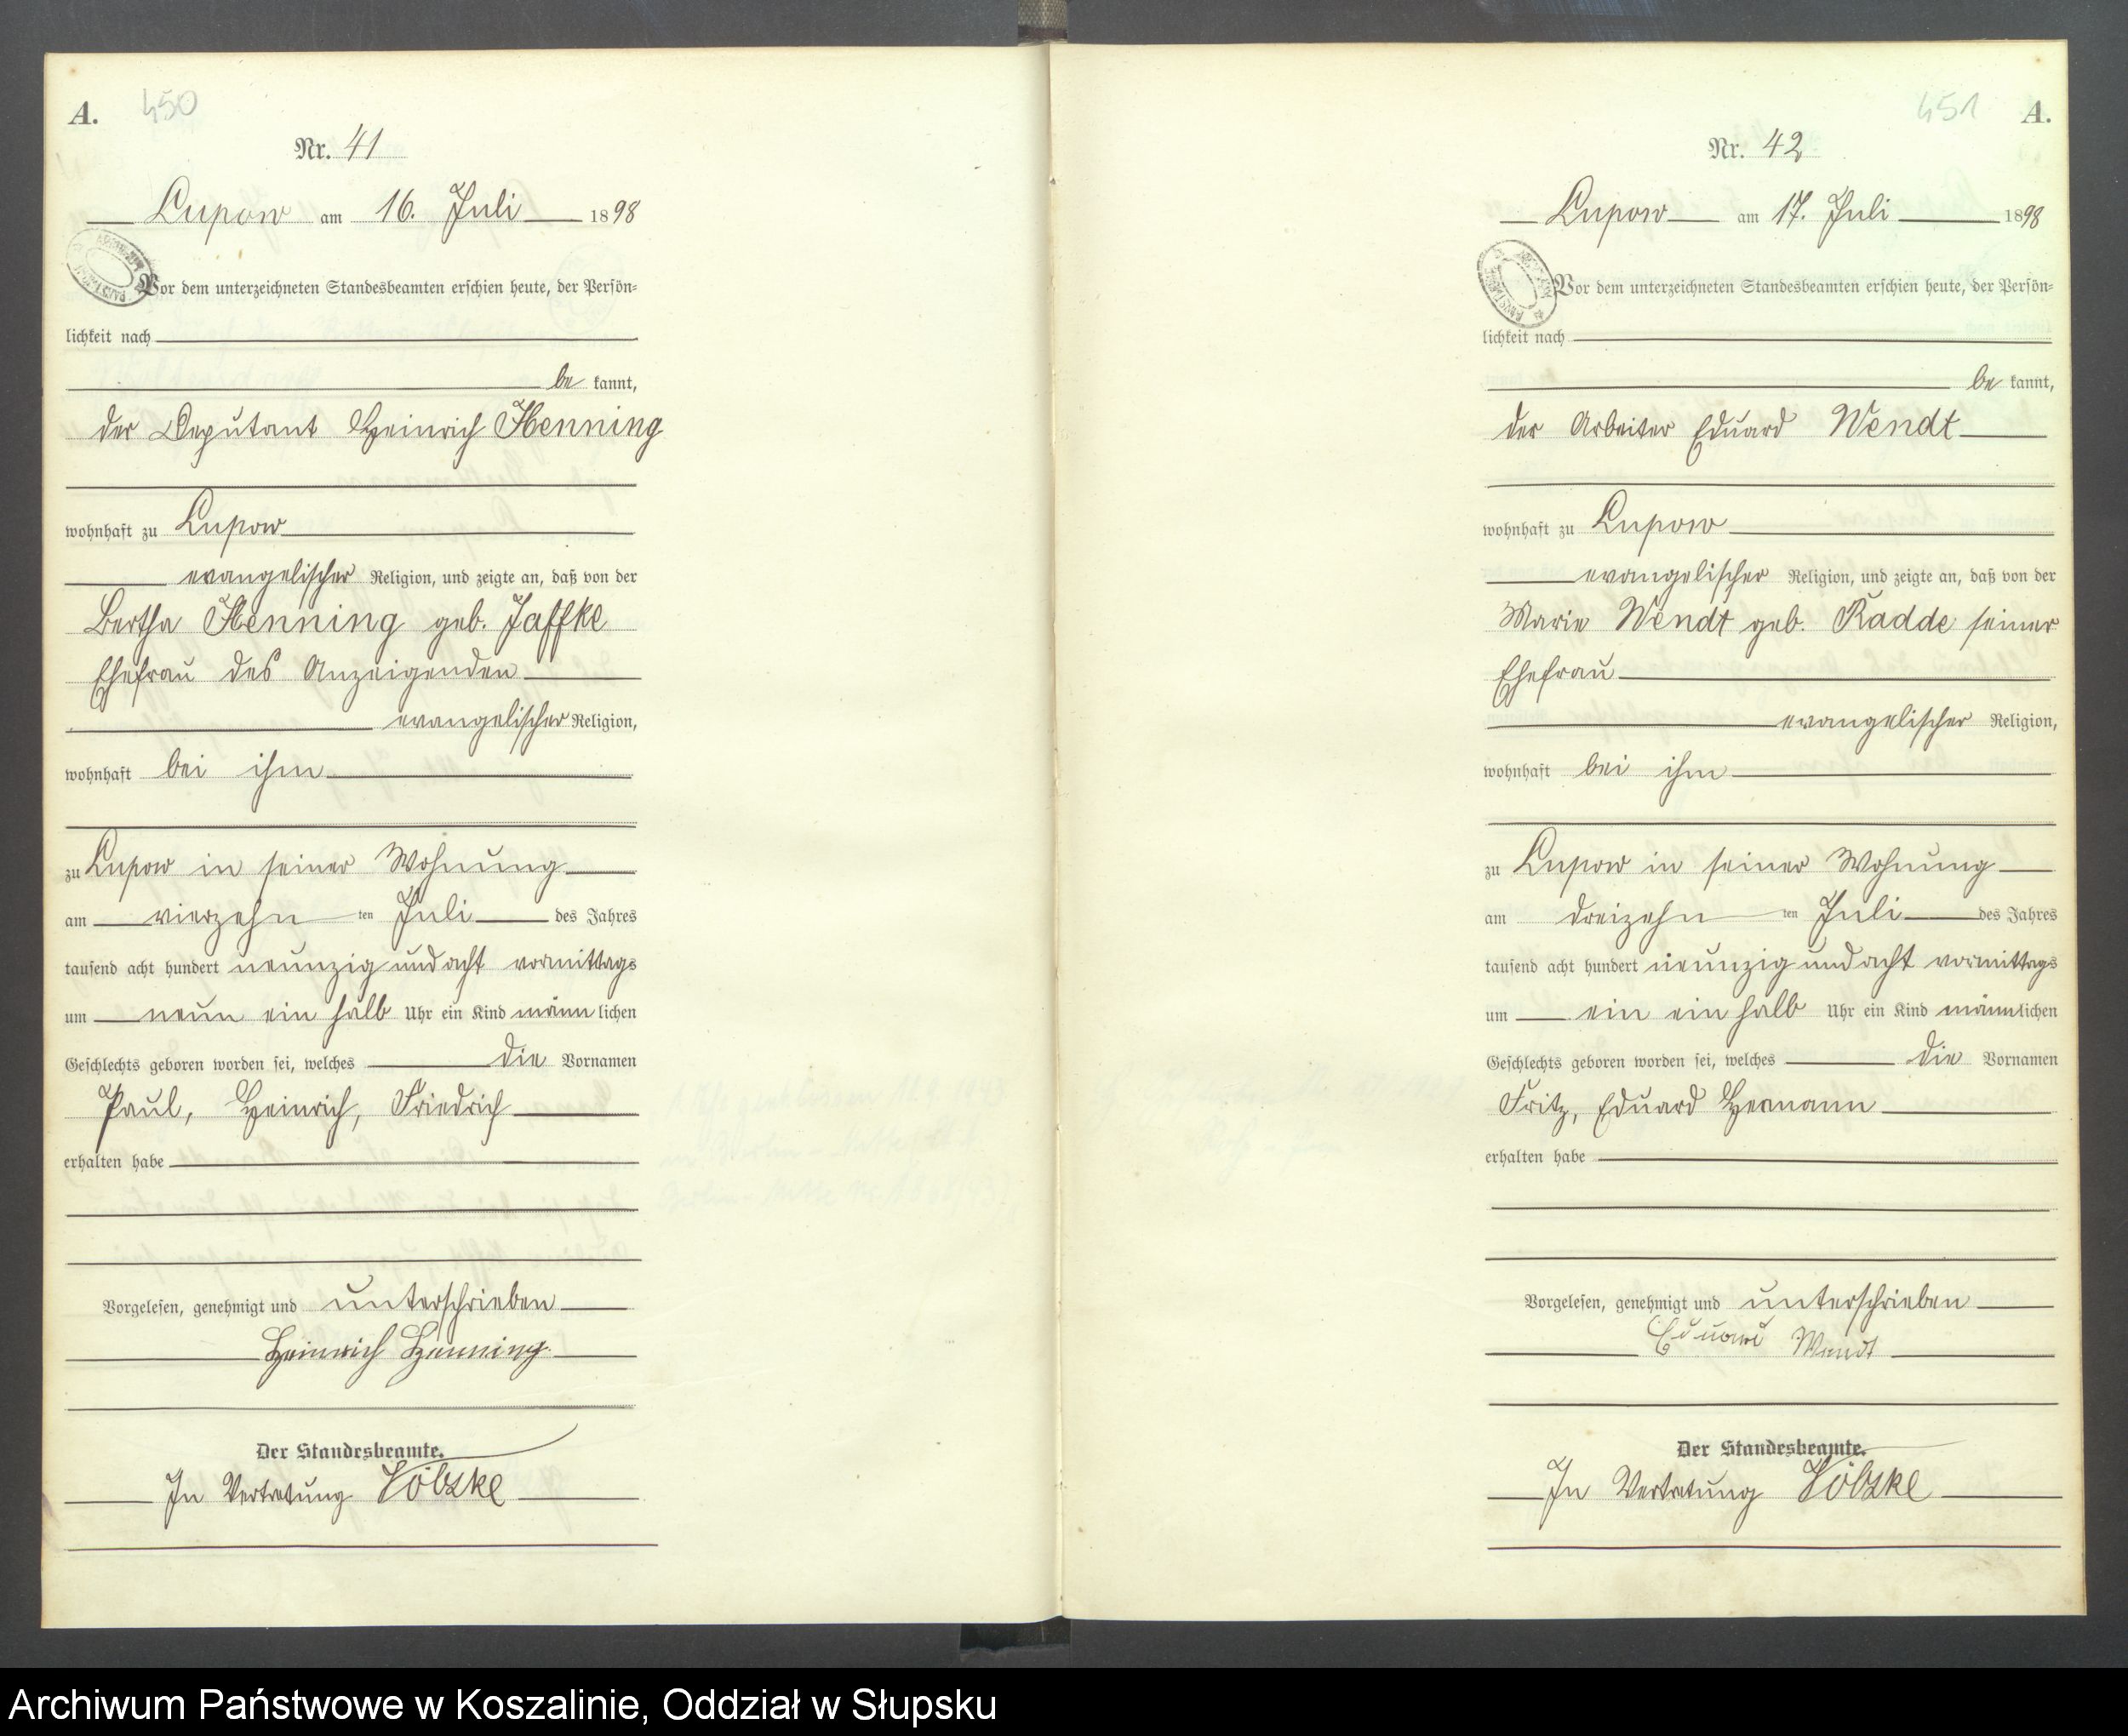 A.
450
Nr. 41
Lupow am 16. Juli 1898
Vor dem unterzeichneten Standesbeamten erschien heute, der Persön=
lichkeit nach
be kannt,
der Deputant Heinrich Henning
wohnhaft zu Lupow
evangelischer Religion, und zeigte an, daß von der
Bertha Henning geb. Jaffke
Ehefrau des Anzeigenden
evangelischer Religion,
wohnhaft bei ihm
zu Lupow in seiner Wohnung
am vierzehn ten Juli des Jahres
tausend acht hundert neunzig und acht vormittags
um neun ein halb Uhr ein Kind männlichen
Geschlechts geboren worden sei, welches die Vornamen
Paul, Heinrich, Friedrich
erhalten habe
Vorgelesen, genehmigt und unterschrieben
Heinrich Henning
Der Standesbeamte.
In Vertretung
451
A.
Nr. 42
Lupow am 17. Juli 1898
Vor dem unterzeichneten Standesbeamten erschien heute, der Persön=
lichkeit nach
be kannt,
der Arbeiter Eduard Wendt
wohnhaft zu Lupow
evangelischer Religion, und zeigte an, daß von der
Marie Wendt geb. Radde seiner
Ehefrau
evangelischer Religion,
wohnhaft bei ihm
zu Lupow in seiner Wohnung
am dreizehn ten Juli des Jahres
tausend acht hundert neunzig und acht vormittags
um ein ein halb Uhr ein Kind männlichen
Geschlechts geboren worden sei, welches die Vornamen
Fritz, Eduard Hermann
erhalten habe
Vorgelesen, genehmigt und unterschrieben
Eduard Wendt
Der Standesbeamte.
In Vertretung
Archiwum Państwowe w Koszalinie, Oddział w Słupsku